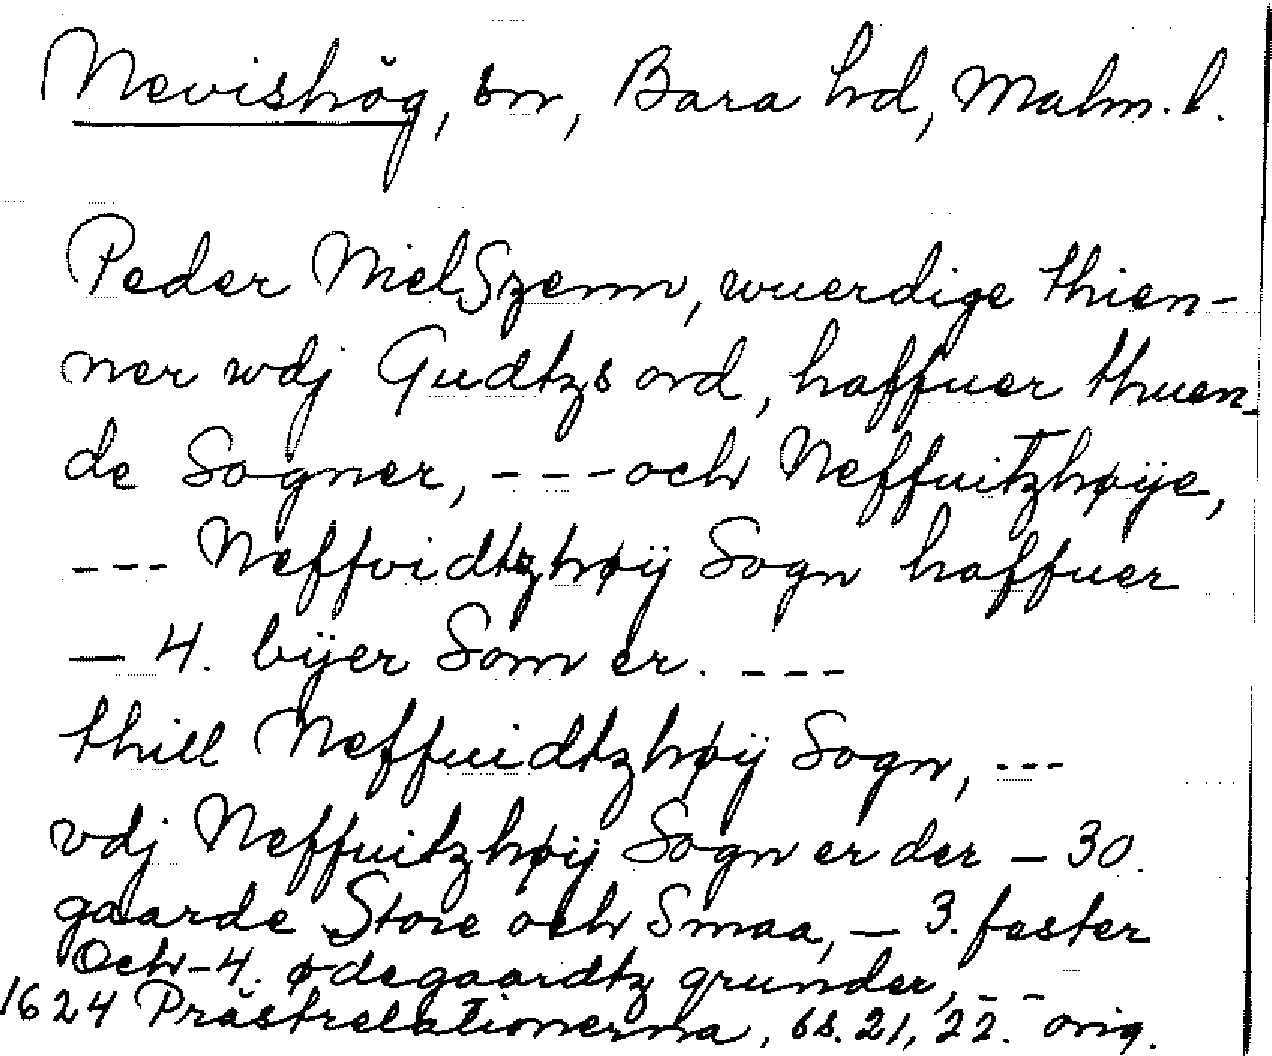 Nevishög, sn, Bara hd, Malm. l.
Peder NielSzenn, wuerdige thien-
ner wdj Gudtzs ord, haffuer thuen-
de Sogner, --- och Neffuitzhøÿe,
--- Neffvidtzhøÿ Sogn haffuer
— 4. bÿer Som er. ---
thill Neffuidtzhøÿ Sogn, ---
vdj Neffuitzhøÿ Sogn er der — 30.
gaarde Store och Smaa, — 3. faster
Och - 4. ødegaardtz grunder, --
1624 Prästrelationerna, bl. 21, 22. orig.